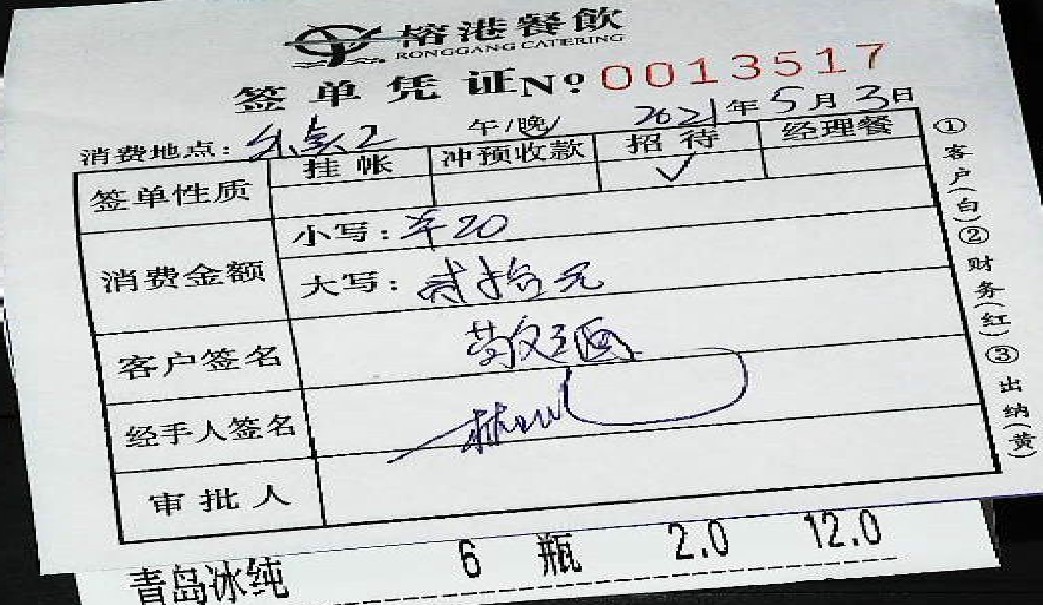 榕港餐飲
RONGGANG CATERING
签单凭证No 0013517
消费地点: 午/晚 2021年5月3日
签单性质 挂帐 冲预收款 招待 经理餐
✓
消费金额 小写: 20
大写: 贰拾元
客户签名
经手人签名
审批人
①客户(白)②财务(红)③出纳(黄)
青岛冰纯 6 瓶 2.0 12.0